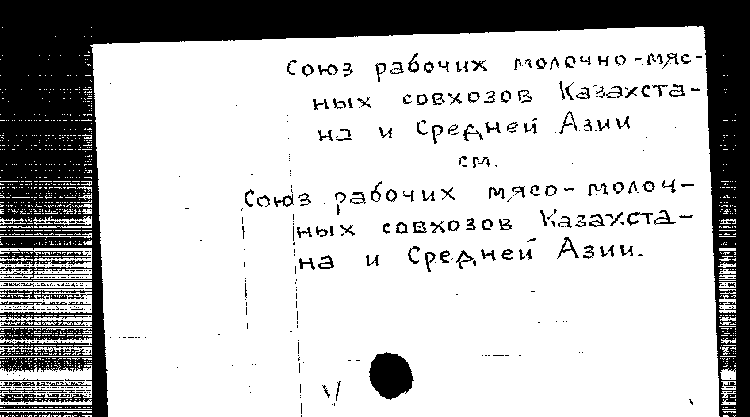 Союз рабочих молочно-мяс-
ных совхозов Казахста-
на и Средней Азии
см.
Союз рабочих мясо-молоч-
ных совхозов Казахста-
на и Средней Азии.
V